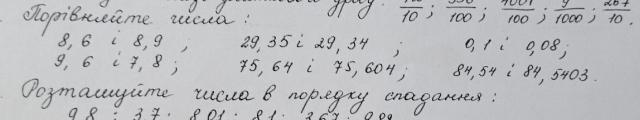 10 ; 100 ; 100 ; 1000 ; 10 .
Порівняйте числа :
8,6 і 8,9 ; 29,35 і 29,34 ; 0,1 і 0,08;
9,6 і 7,8 ; 75,64 і 75,604; 84,54 і 84,5403.
Розташуйте числа в порядку спадання :
9,8 ; 3,7 ; 8,01 ; 8,1 ;